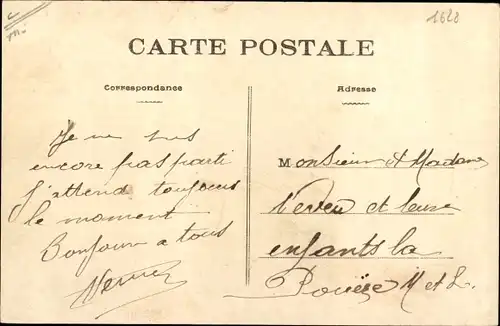 1628
CARTE POSTALE
Correspondance
Adresse
Je ne suis
encore pas parti
j'attend toujours
le moment
Bonjour a tous
Monsieur et Madame
et leurs
enfants la
Pouëze M et L.